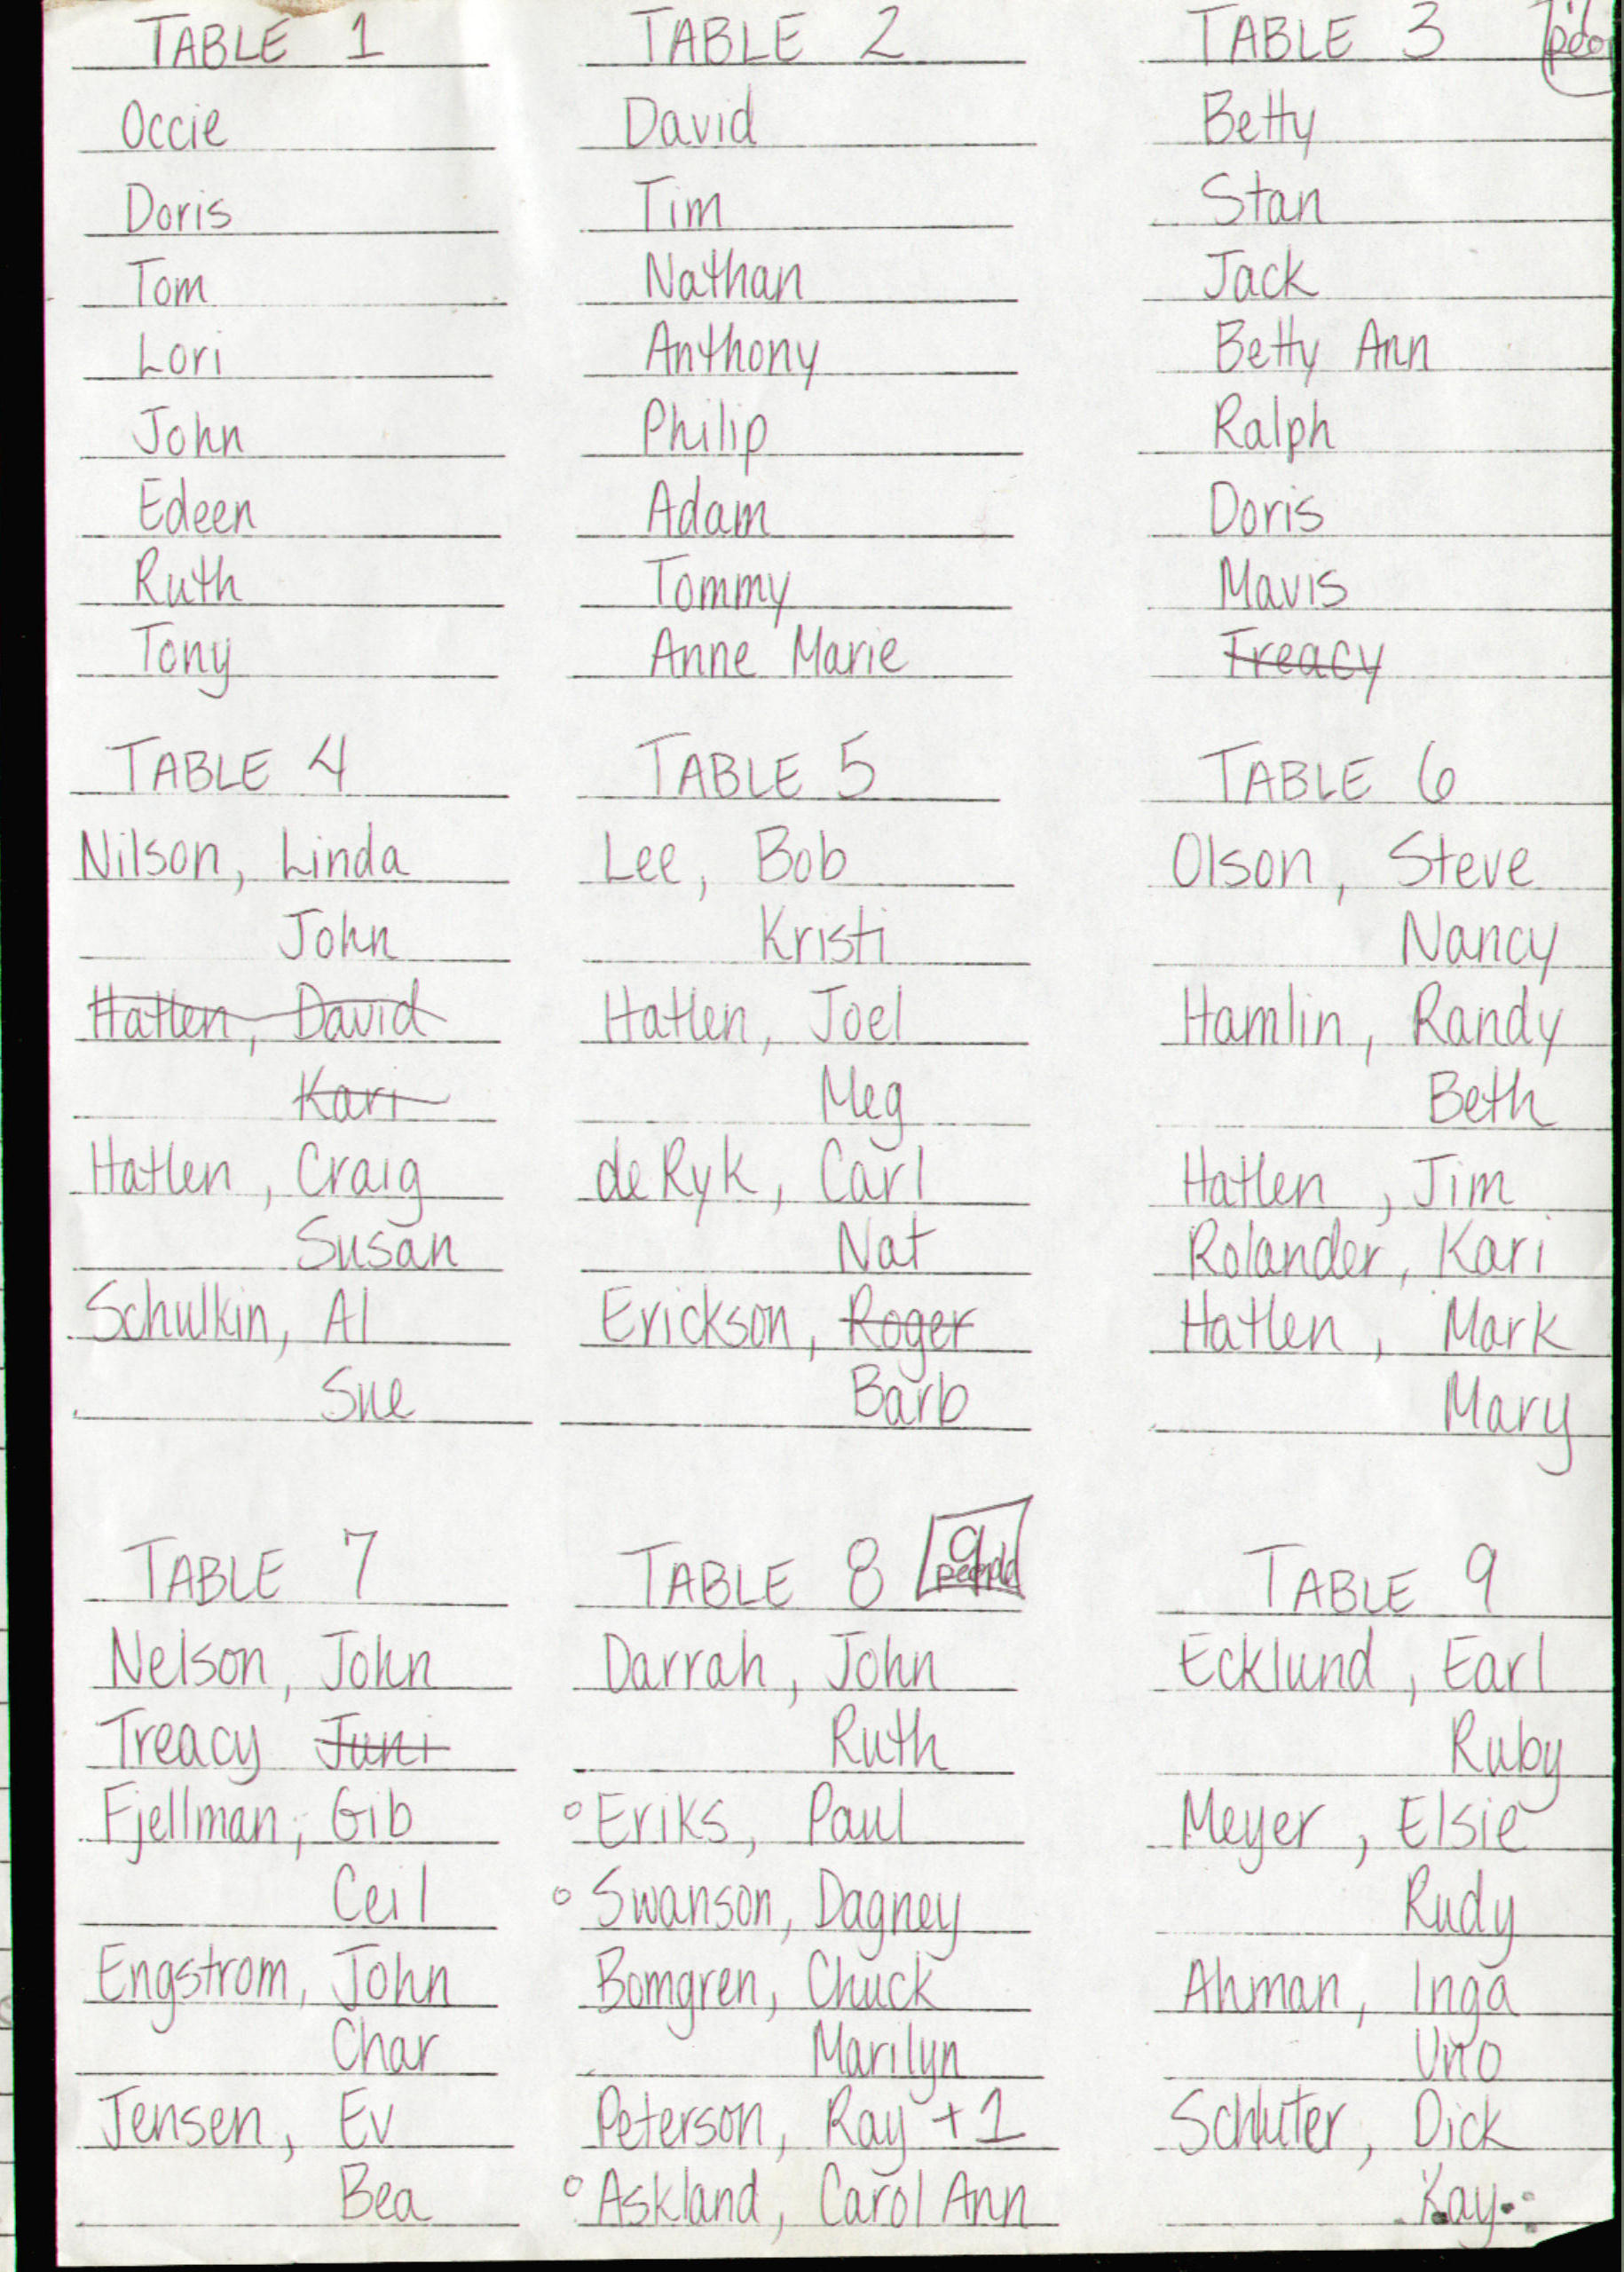 TABLE 1
Occie
Doris
Tom
Lori
John
Edeen
Ruth
Tony
TABLE 2
David
Tim
Nathan
Anthony
Philip
Adam
Tommy
Anne Marie
TABLE 3
Betty
Stan
Jack
Betty Ann
Ralph
Doris
Mavis
Treacy
TABLE 4
Nilson, Linda
John
Hatlen, David
Kari
Hatlen, Craig
Susan
Schulkin, Al
Sue
TABLE 5
Lee, Bob
Kristi
Hatlen, Joel
Meg
de Ryk, Carl
Nat
Erickson, Roger
Barb
TABLE 6
Olson, Steve
Nancy
Hamlin, Randy
Beth
Hatlen, Jim
Rolander, Kari
Hatlen, Mark
Mary
TABLE 7
Nelson, John
Treacy Juni
Fjellman, Gib
Ceil
Engstrom, John
Char
Jensen, Ev
Bea
TABLE 8 9 people
Darrah, John
Ruth
Eriks, Paul
Swanson, Dagney
Bomgren, Chuck
Marilyn
Peterson, Ray + 1
Askland, Carol Ann
TABLE 9
Ecklund, Earl
Ruby
Meyer, Elsie
Rudy
Ahman, Inga
Uno
Schluter, Dick
Kay